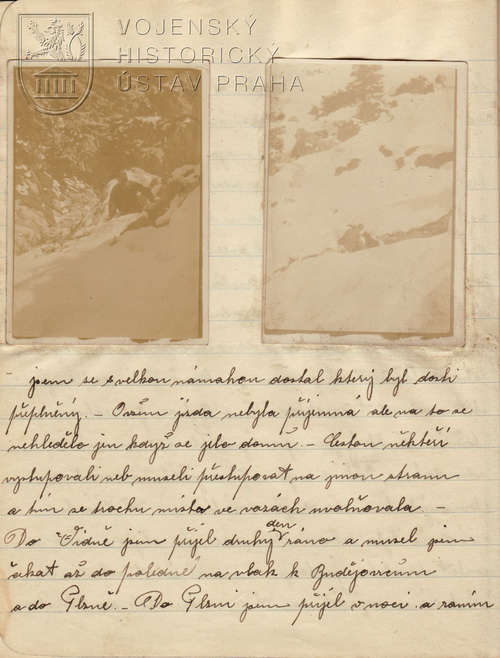 VOJENSKÝ
HISTORICKÝ
ÚSTAV PRAHA
jsem se s velkou námahou dostal který byl dosti
přeplněný. – Ovšem jízda nebyla příjemná ale na to se
nehledělo jen když se jelo domů. – Cestou někteří
vystupovali neb museli přestupovat na jinou stranu
a tím se trochu místa ve vozách uvolňovala. –
Do Vídně jsem přijel druhý den ráno a musel jsem
čekat až do poledne na vlak k Budějovicům
a do Plzně. – Do Plzni jsem přijel v noci a raním